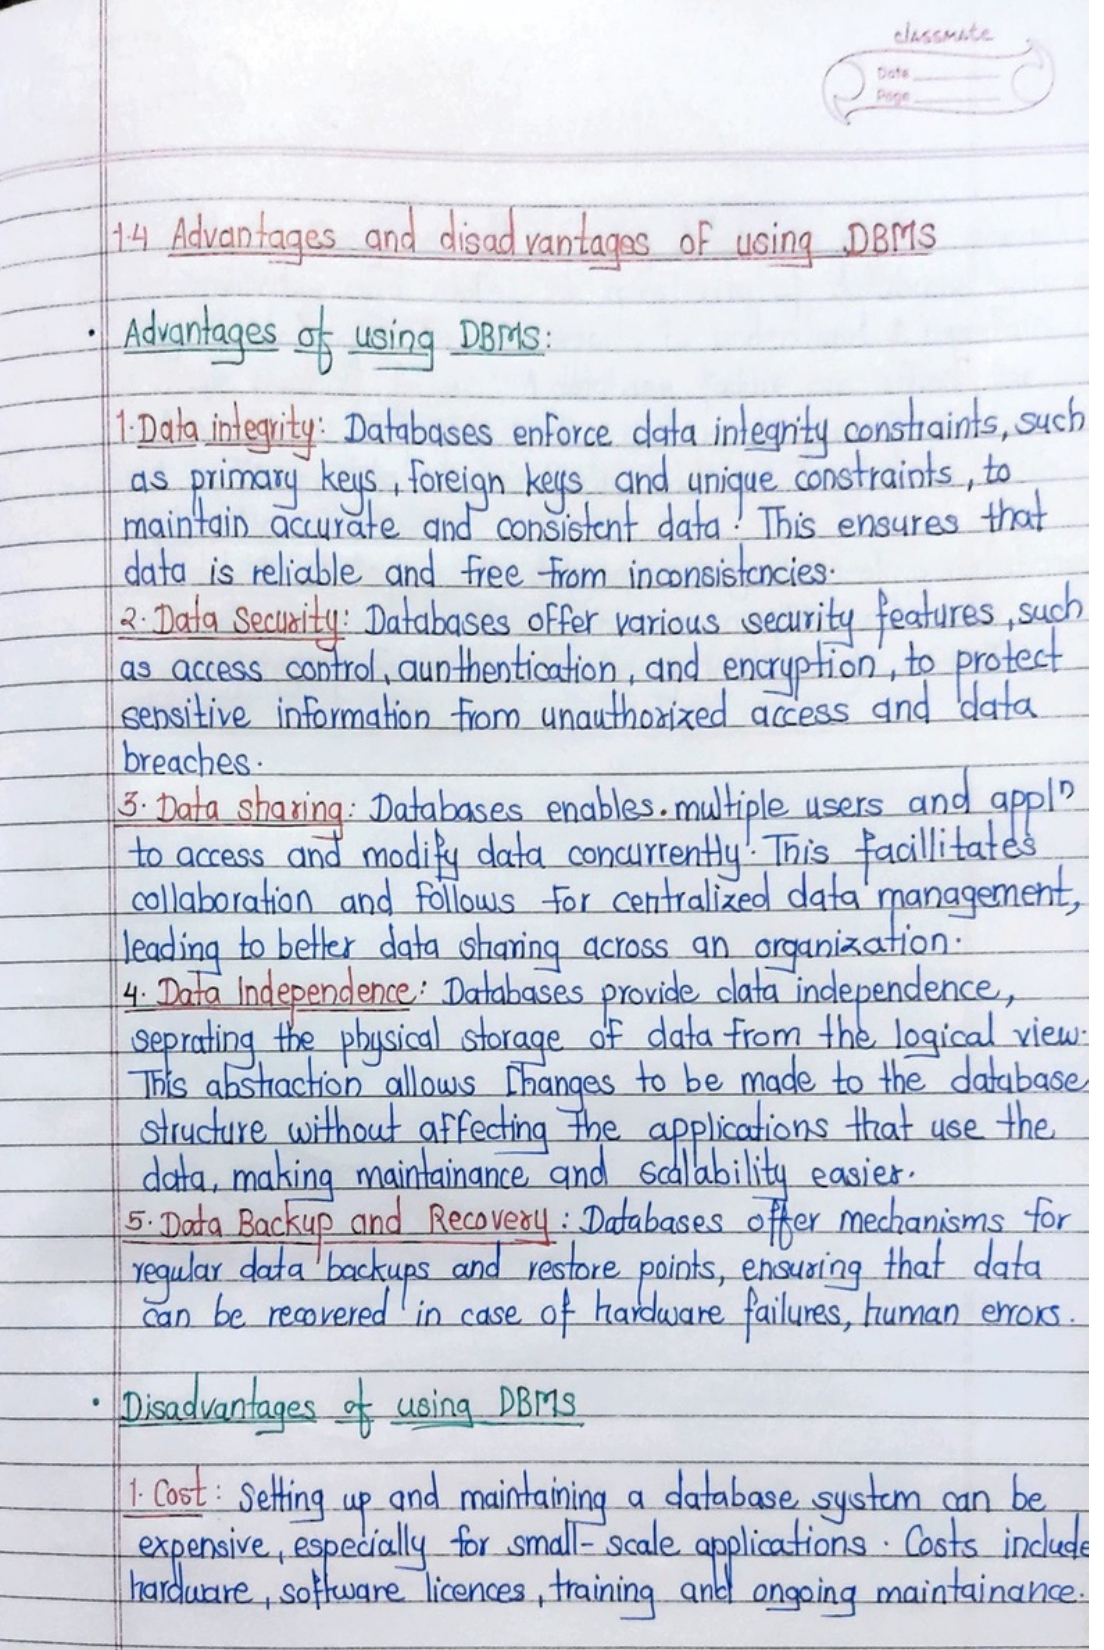 classmate
Date
Page
1.4 Advantages and disadvantages of using DBMS
• Advantages of using DBMS:
1. Data integrity: Databases enforce data integrity constraints, such
as primary keys, foreign keys and unique constraints, to
maintain accurate and consistent data. This ensures that
data is reliable and free from inconsistencies.
2. Data Security: Databases offer various security features, such
as access control, aunthentication, and encryption, to protect
sensitive information from unauthorized access and data
breaches.
3. Data sharing: Databases enables. multiple users and appln
to access and modify data concurrently. This facillitates
collaboration and follows for centralized data management,
leading to better data sharing across an organization.
4. Data Independence: Databases provide data independence,
seprating the physical storage of data from the logical view.
This abstraction allows changes to be made to the database
structure without affecting the applications that use the
data, making maintainance and scalability easier.
5. Data Backup and Recovery: Databases offer mechanisms for
regular data backups and restore points, ensuring that data
can be recovered in case of hardware failures, human errors.
• Disadvantages of using DBMS
1. Cost: Setting up and maintaining a database system can be
expensive, especially for small-scale applications. Costs include
hardware, software licences, training and ongoing maintainance.